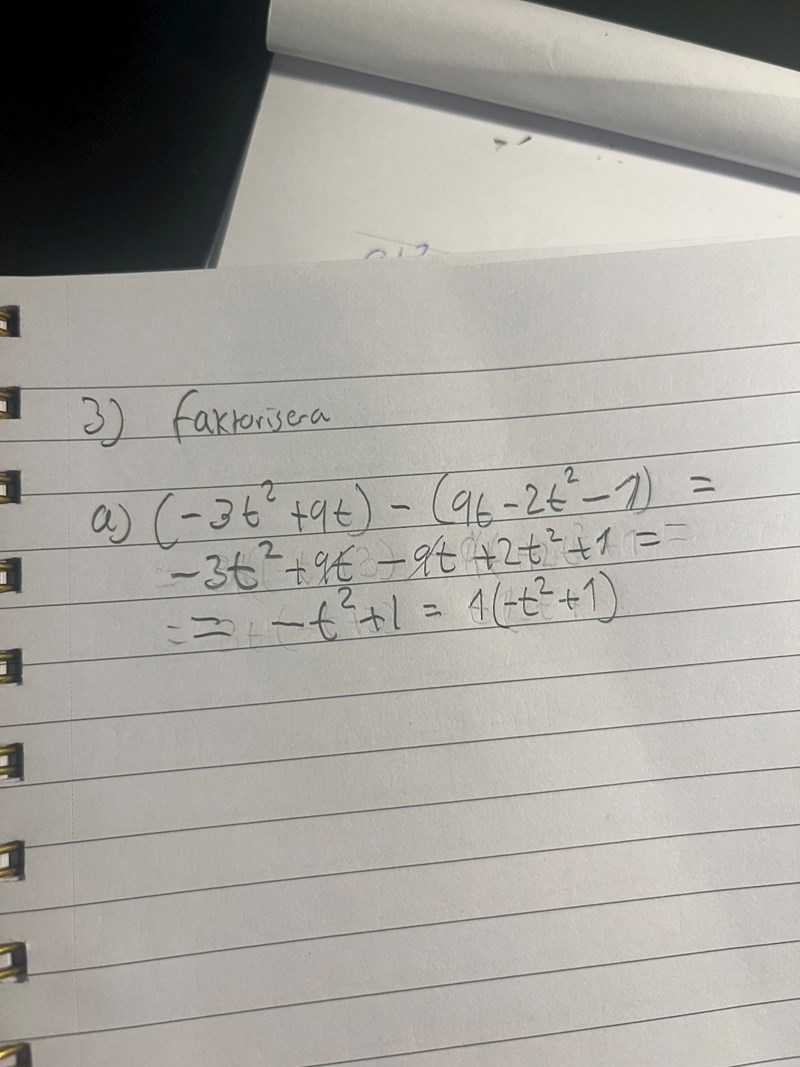 3) faktorisera
a) (-3t² + 9t) - (9t - 2t² - 1) =
-3t² + 9t - 9t + 2t² + 1 = =
= = -t² + 1 = 1(-t² + 1)